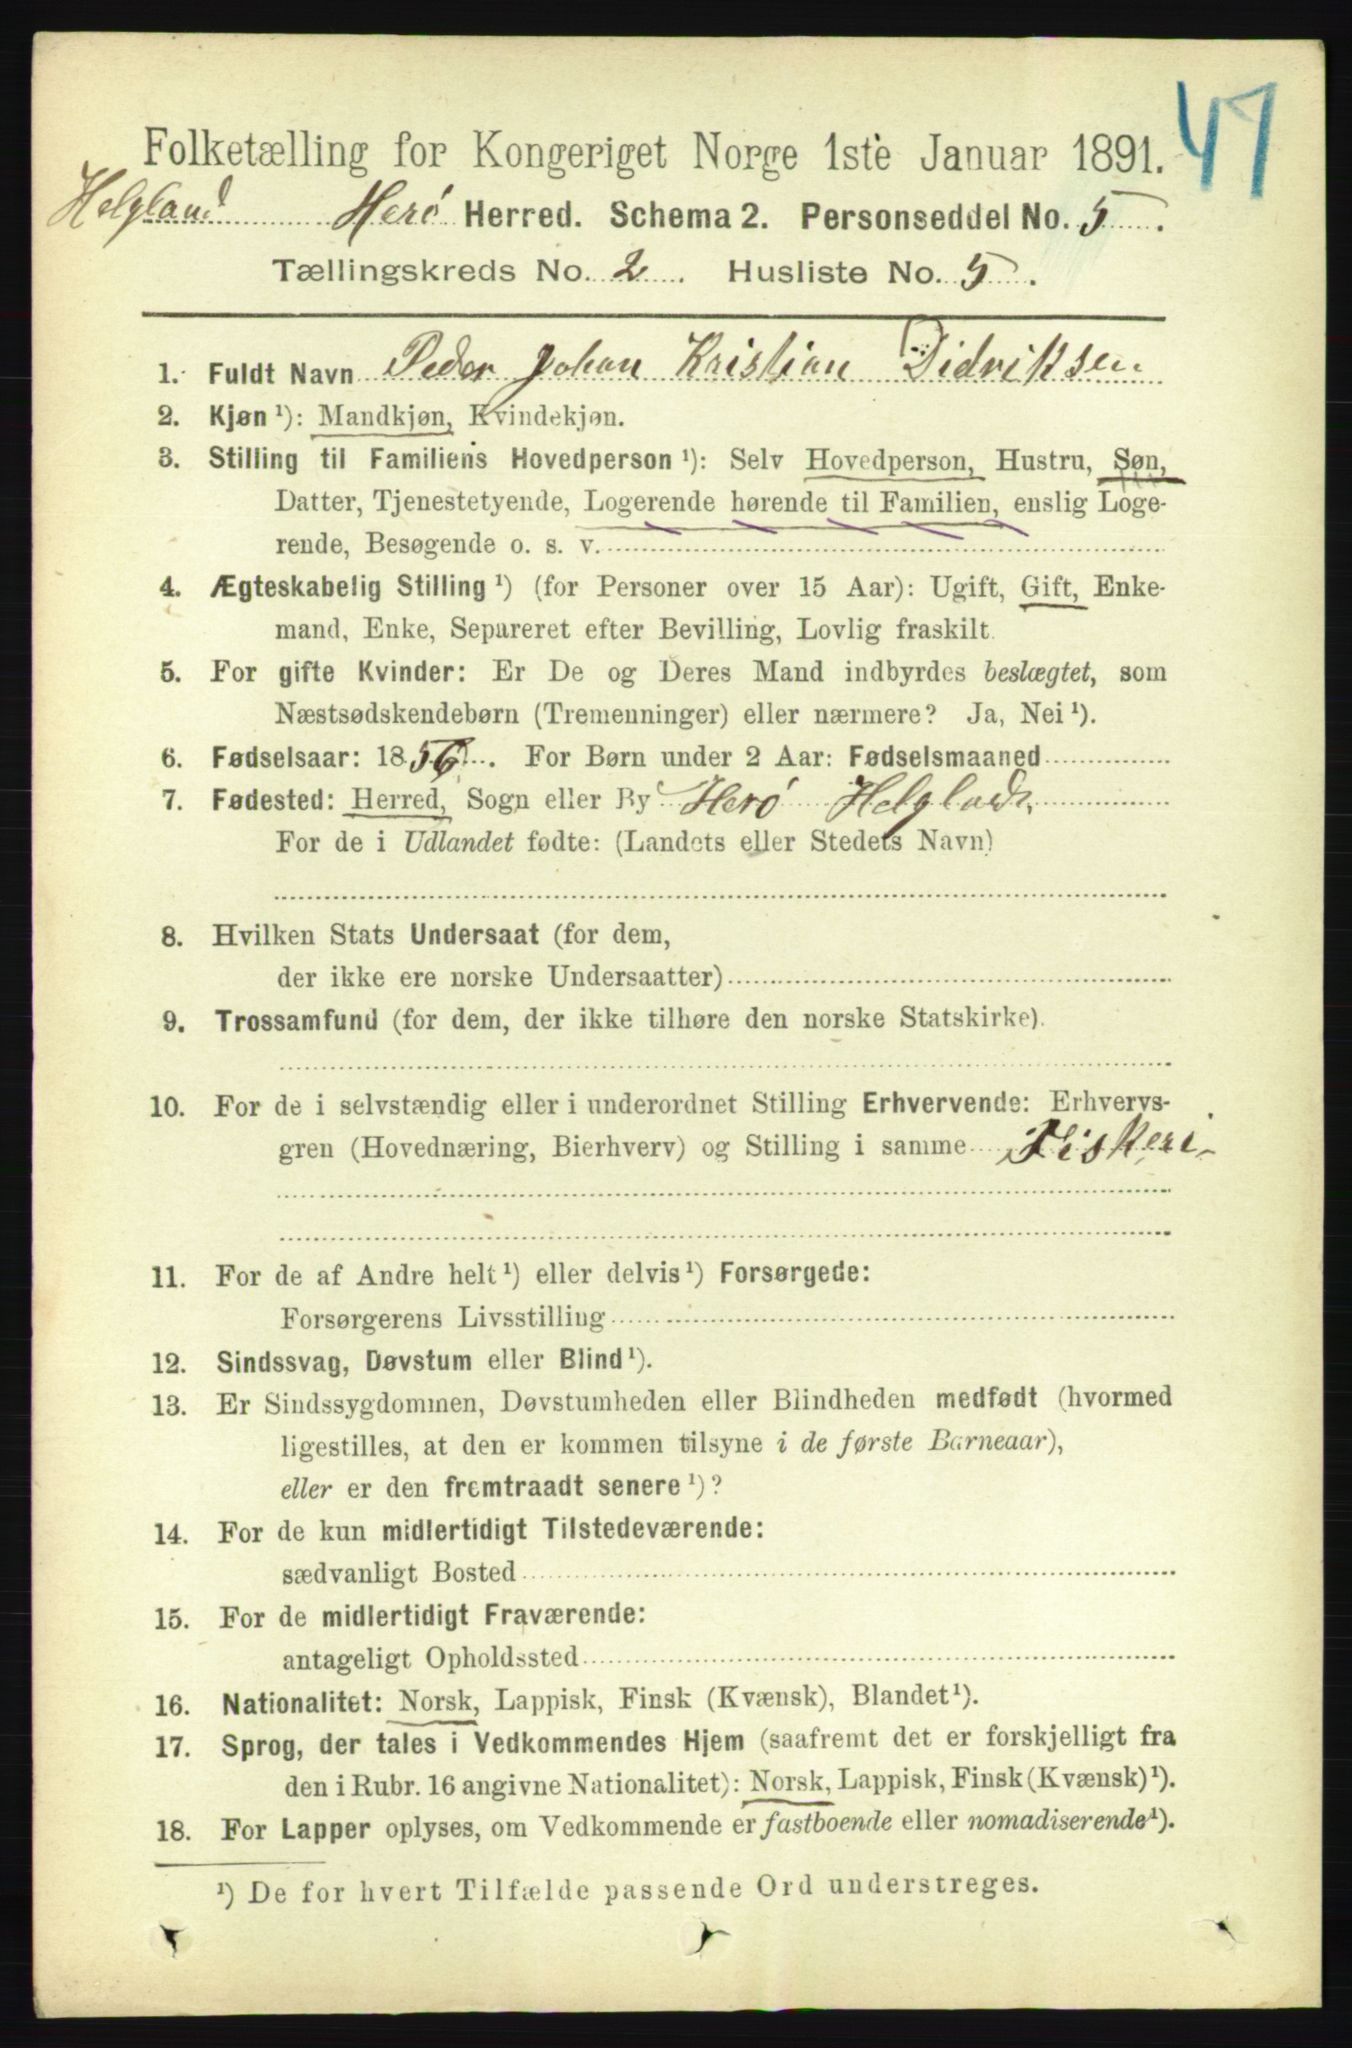 47
Folketælling for Kongeriget Norge 1ste Januar 1891.
Helgland Herø Herred. Schema 2. Personseddel No. 5.
Tællingskreds No. 2. Husliste No. 5.
1. Fuldt Navn Peder Johan Kristian Didriksen
2. Kjøn ¹): Mandkjøn, Kvindekjøn.
3. Stilling til Familiens Hovedperson ¹): Selv Hovedperson, Hustru, Søn,
Datter, Tjenestetyende, Logerende hørende til Familien, enslig Loge-
rende, Besøgende o. s. v.
4. Ægteskabelig Stilling ¹) (for Personer over 15 Aar): Ugift, Gift, Enke-
mand, Enke, Separeret efter Bevilling, Lovlig fraskilt.
5. For gifte Kvinder: Er De og Deres Mand indbyrdes beslægtet, som
Næstsødskendebørn (Tremenninger) eller nærmere? Ja, Nei ¹).
6. Fødselsaar: 1856. For Børn under 2 Aar: Fødselsmaaned
7. Fødested: Herred, Sogn eller By Herø Helglads.
For de i Udlandet fødte: (Landets eller Stedets Navn)
8. Hvilken Stats Undersaat (for dem,
der ikke ere norske Undersaatter)
9. Trossamfund (for dem, der ikke tilhøre den norske Statskirke).
10. For de i selvstændig eller i underordnet Stilling Erhvervende: Erhvervs-
gren (Hovednæring, Bierhverv) og Stilling i samme Fiskeri
11. For de af Andre helt ¹) eller delvis ¹) Forsørgede:
Forsørgerens Livsstilling
12. Sindssvag, Døvstum eller Blind ¹).
13. Er Sindssygdommen, Døvstumheden eller Blindheden medfødt (hvormed
ligestilles, at den er kommen tilsyne i de første Barneaar),
eller er den fremtraadt senere ¹)?
14. For de kun midlertidigt Tilstedeværende:
sædvanligt Bosted
15. For de midlertidigt Fraværende:
antageligt Opholdssted
16. Nationalitet: Norsk, Lappisk, Finsk (Kvænsk), Blandet ¹).
17. Sprog, der tales i Vedkommendes Hjem (saafremt det er forskjelligt fra
den i Rubr. 16 angivne Nationalitet): Norsk, Lappisk, Finsk (Kvænsk) ¹).
18. For Lapper oplyses, om Vedkommende er fastboende eller nomadiserende ¹).
¹) De for hvert Tilfælde passende Ord understreges.